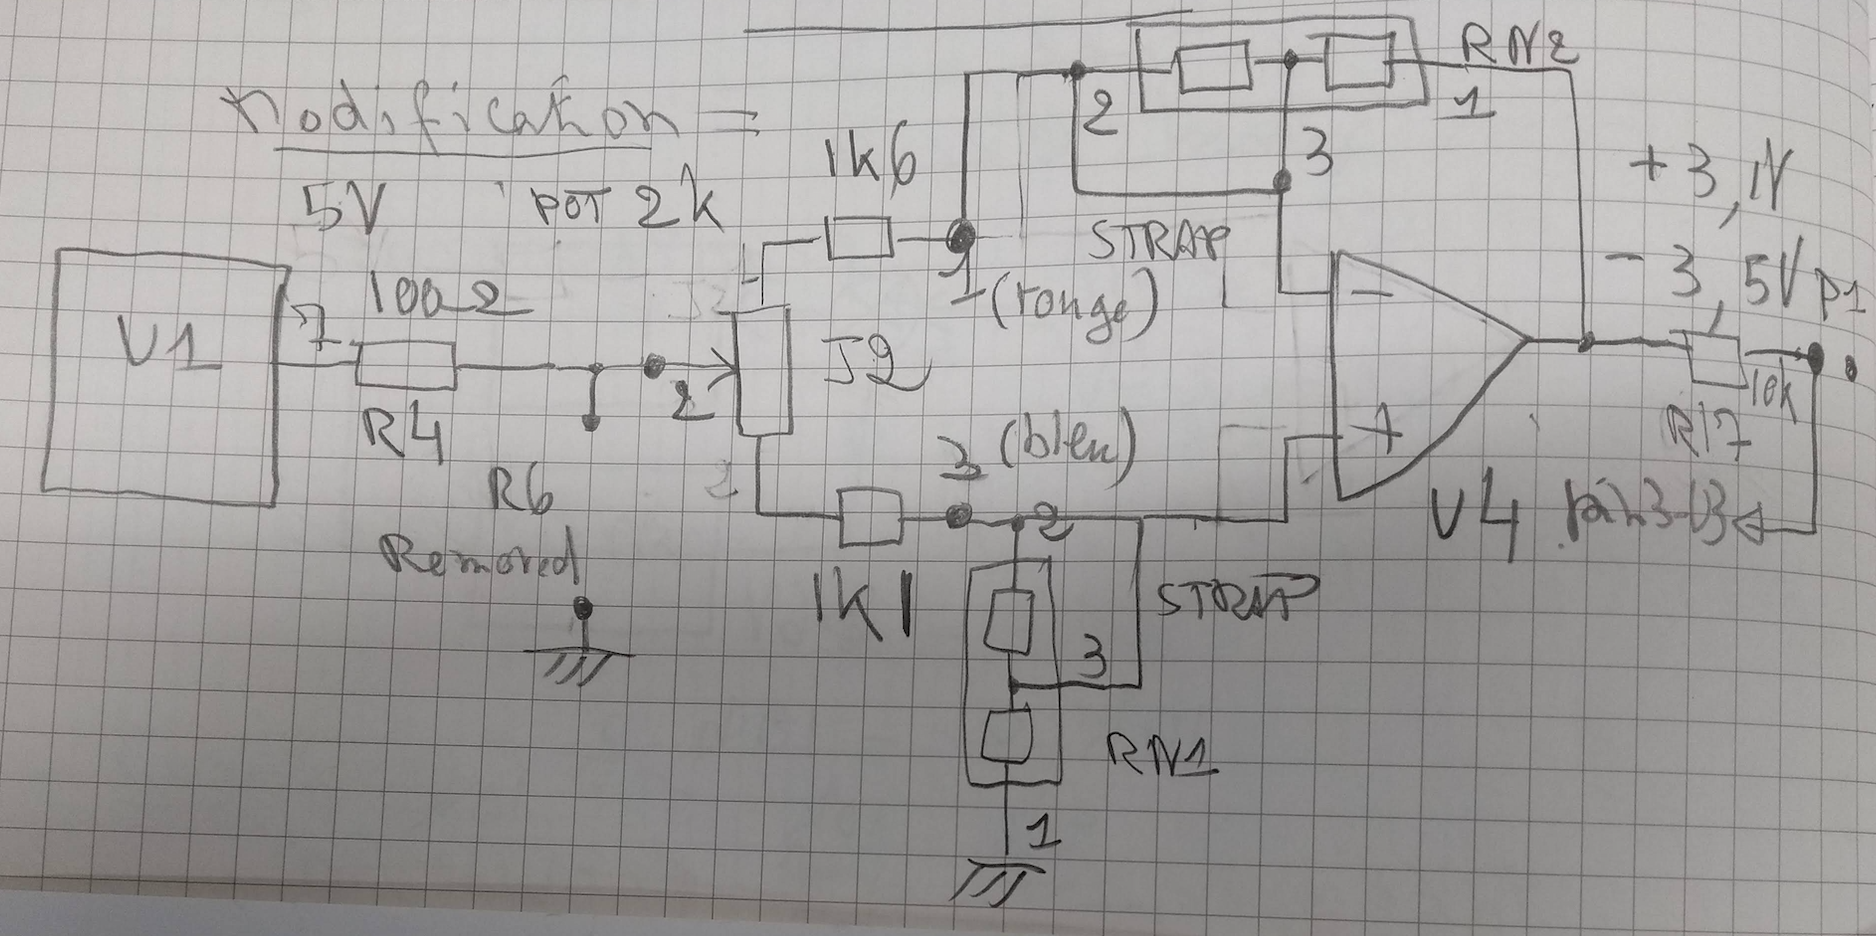 RN2
modification =
2
1
1k6
3
+3,1V
5V POT 2k
STRAP
-3,5V P1
100Ω
1 (rouge)
U1
7
J2
2
10k
R4
R17
3 (bleu)
R6
2
U4 pin3-U3
Removed
1k1
STRAP
3
RN1
1